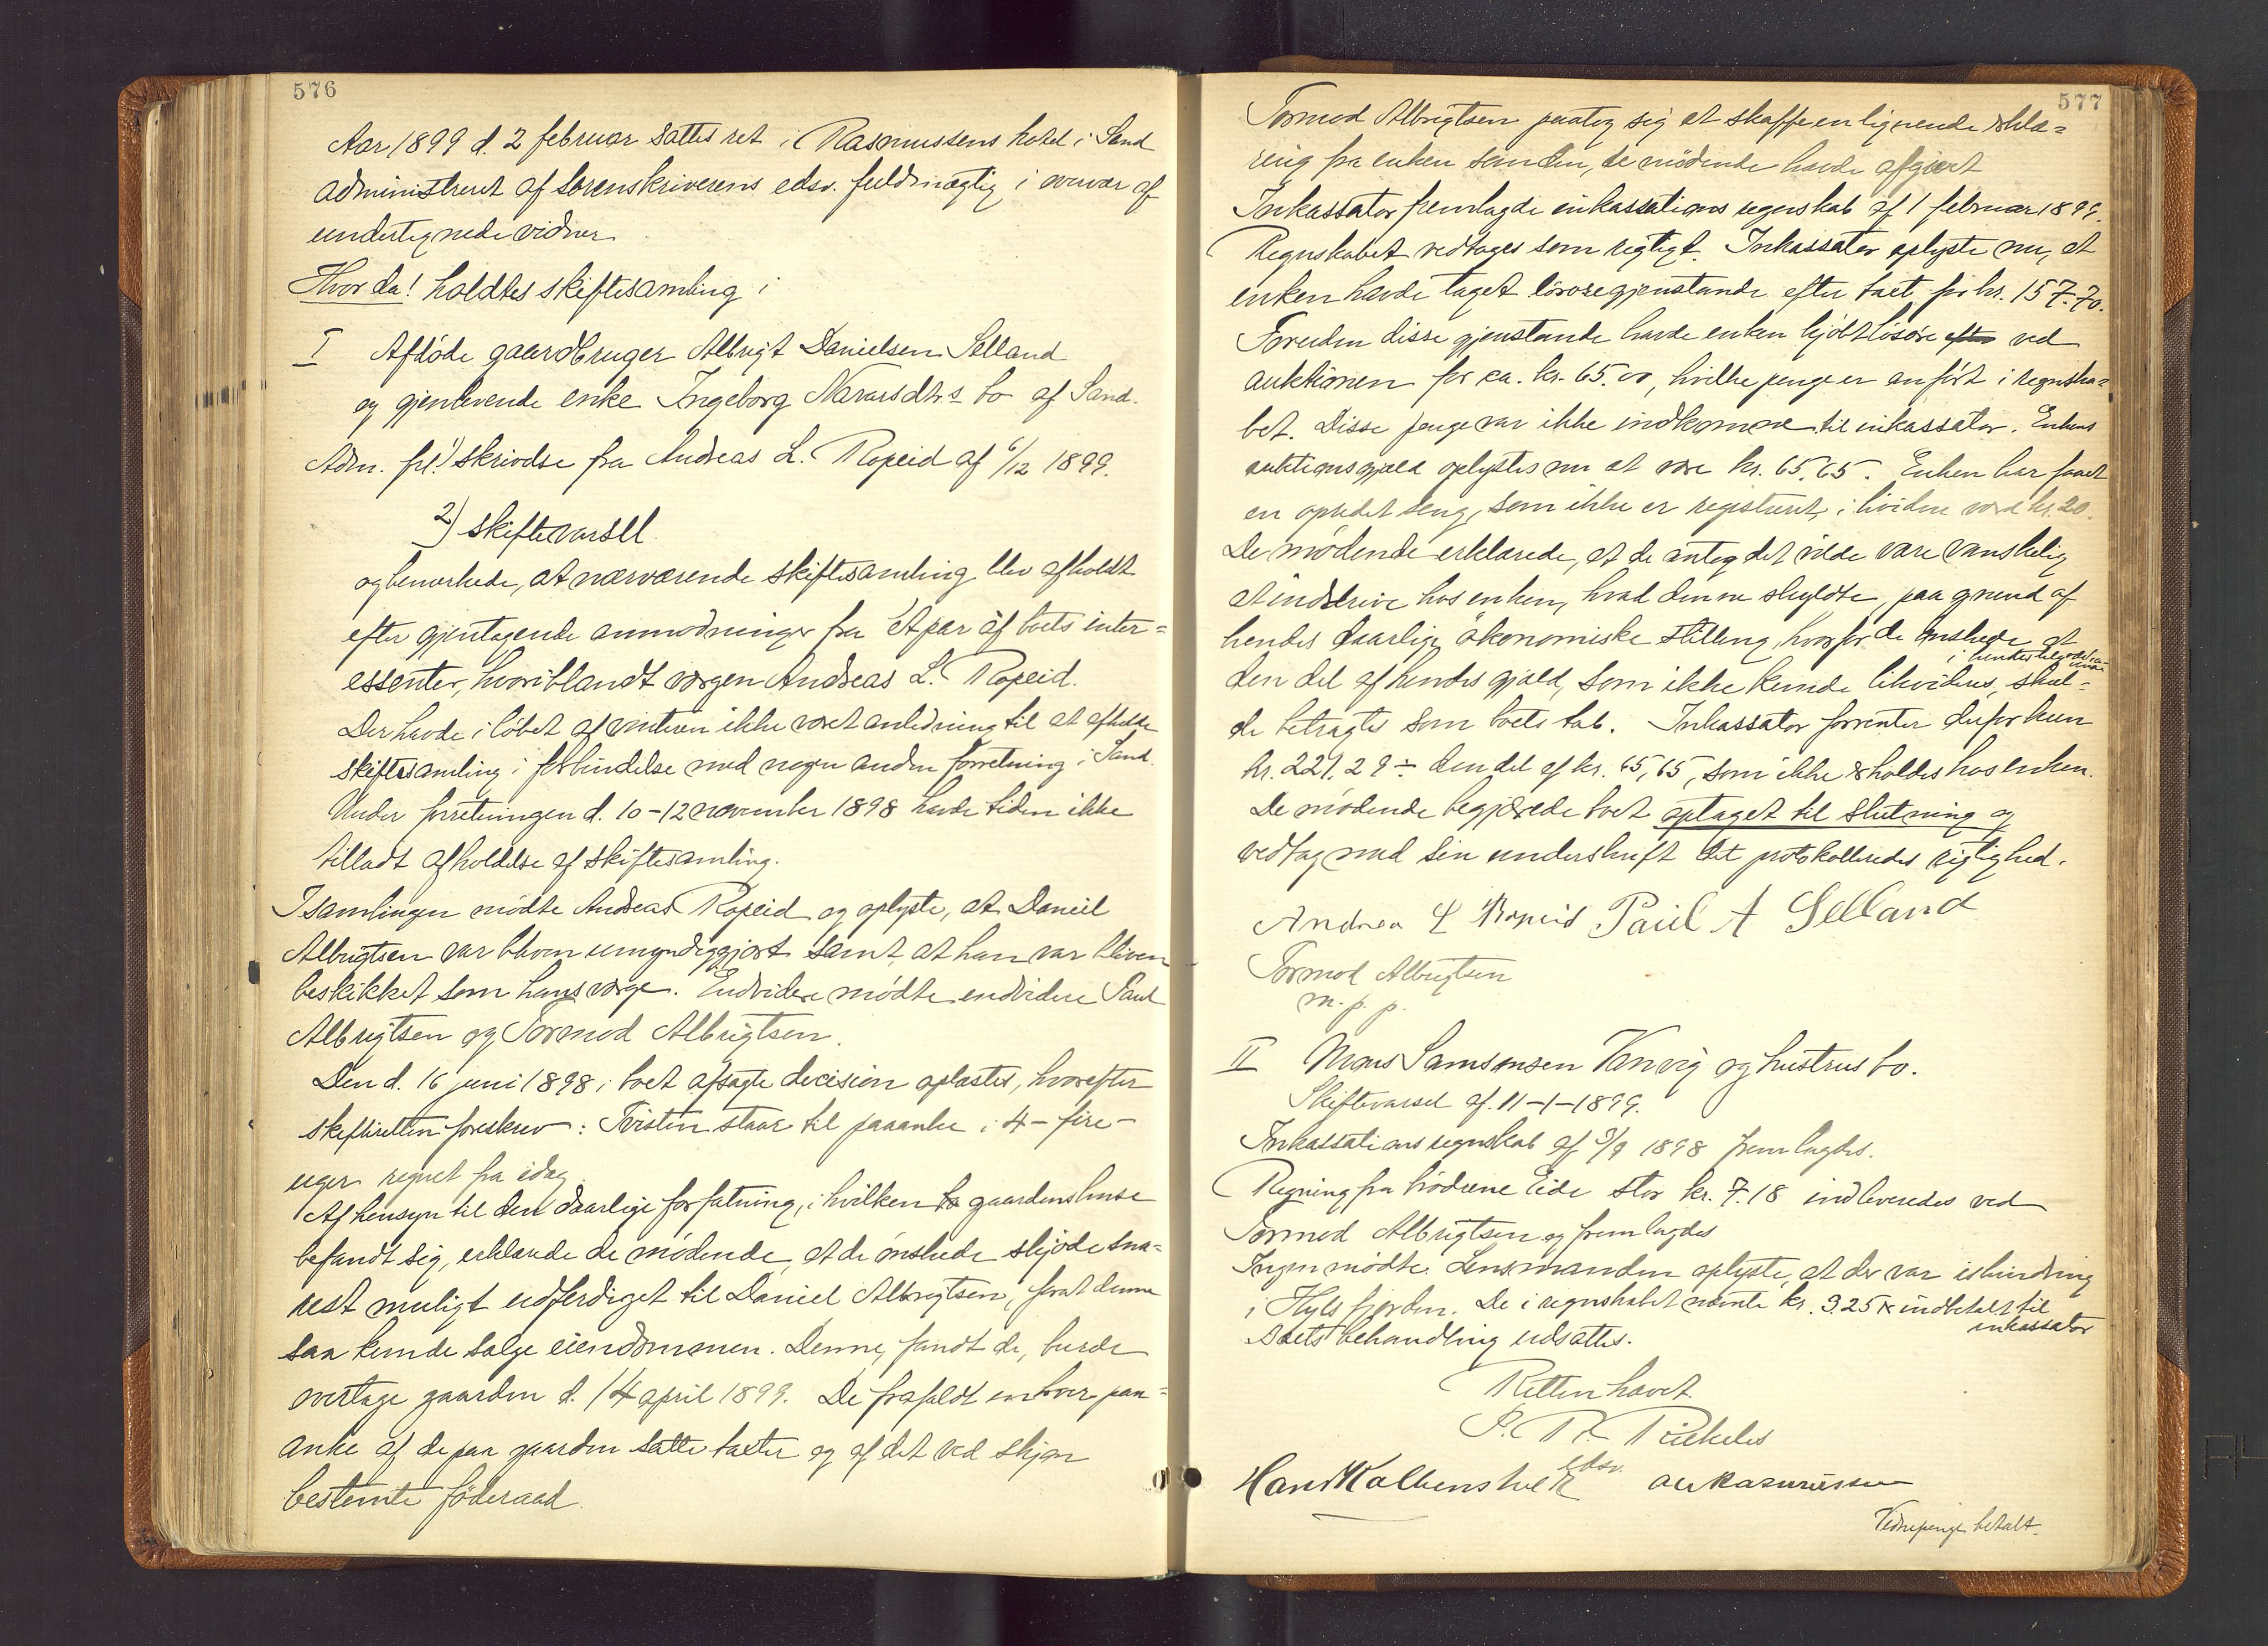 576
Aar 1899 d. 2 februar sattes ret i Rasmussens hotel i Sand
administreret af sorenskriverens edsv. fuldmægtig i overvær af
undertegnede vidner
Hvor da! holdtes skiftesamling i
I Afdøde gaardbruger Albrigt Danielsen Selland
og gjenlevende enke Ingeborg Navarsdtrs bo af Sand.
Adm. frl. 1) skrivelse fra Andreas L. Ropeid af 6/12 1899.
2) skiftevarsel
og bemærkede, at nærværende skiftesamling blev afholdt
efter gjentagende anmodninger fra et par af boets inter=
essenter, hvoriblandt værgen Andreas L. Ropeid.
Der havde i løbet af vinteren ikke været anledning til at afholde
skiftesamling i forbindelse med nogen anden forretning i Sand.
Under forretningen d. 10-12 november 1898 havde tiden ikke
tilladt afholdelse af skiftesamling.
I samlingen mødte Andreas Ropeid og oplyste, at Daniel
Albrigtsen var bleven umyndiggjort samt at han var bleven
beskikket som hans værge. Endvidere mødte endvidere Paul
Albrigtsen og Tormod Albrigtsen.
Den d. 16 juni 1898 i boet afsagte decision oplæstes, hvorefter
skifteretten foreskrev: Tvisten staar til paaanke i 4 - fire -
uger regnet fra idag
Af hensyn til den daarlige forfatning, i hvilken gaardens huse
befandt sig, erklærede de mødende, at de ønskede skjøde sna=
rest muligt udferdiget til Daniel Albrigtsen, forat denne
saa kunde sælge eiendommen. Denne, fandt de, burde
overtage gaarden d. 14 april 1899. De frafaldt enhver paa=
anke af de paa gaarden satte taxter og af det ved skjøn
bestemte føderaad.
577
Tormod Albrigtsen paatog sig at skaffe en lignende erklæ=
ring fra enken som den, de mødende havde afgivet
Inkassator fremlagde inkassations regnskab af 1 februar 1899.
Regnskabet vedtages som rigtigt. Inkassator oplyste nu, at
enken havde taget løsøregjenstande efter taxt for kr. 157.70.
Foruden disse gjenstande havde enken kjøbt løsøre efter ved
auktionen for ca. kr. 65.00, hvilke penge er anført i regnska=
bet. Disse penge var ikke indkomne til inkassator. Enkens
auktionsgjæld oplystes nu at være kr. 65,65. Enken har faaet
en opredet seng, som ikke er registreret, i hvidne værd kr. 20.
De mødende erklærede, at de antog det vilde være vanskelig
at inddrive hos enken, hvad denne skyldte, paa grund af
hendes daarlige økonomiske stilling, hvorfor de ønskede, at
den del af hendes gjæld, som ikke kunde likvideres, skul=
de betragtes som boets tab. Inkassator forrenter derfor kun
kr. 221.29 ÷ den del af kr. 65,65, som ikke erholdes hos enken.
De mødende begjærede boet optaget til slutning og
vedtog med sin underskrift det protokolleredes rigtighed.
Andreas L Ropeid Paul A Selland
Tormod Albrigtsen
m. p. p.
II Mons Samsonsen Vanvig og hustrus bo.
Skiftevarsel af 11-1-1899.
Inkassations regnskab af 3/9 1898 fremlagdes.
Regning fra brødrene Eide stor kr. 7.18 indleveredes ved
Tormod Albrigtsen og fremlagdes
Ingen mødte. Lensmanden oplyste, at der var ishindring
i Hylsfjorden. De i regnskabet nævnte kr. 3.25 er indbetalt til
inkassator
Boets behandling udsattes.
Retten hævet.
edsv.
Rasmussen
Vidnepenge betalt.